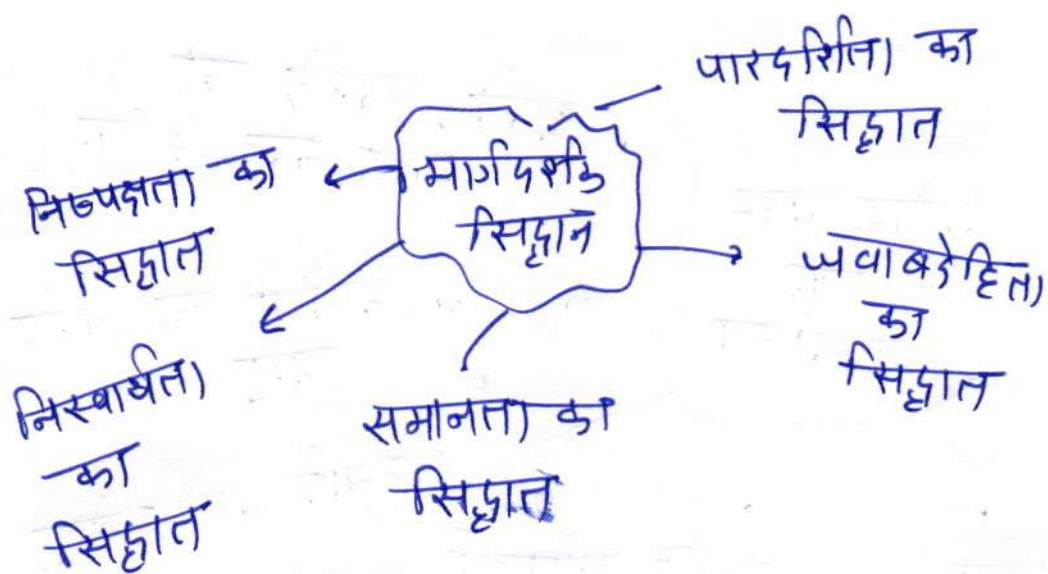 पारदर्शिता का
सिद्धांत
मार्गदर्शक
सिद्धांत
निष्पक्षता का
सिद्धांत
जवाबदेहिता
का
सिद्धांत
निस्वार्थता
का
सिद्धांत
समानता का
सिद्धांत